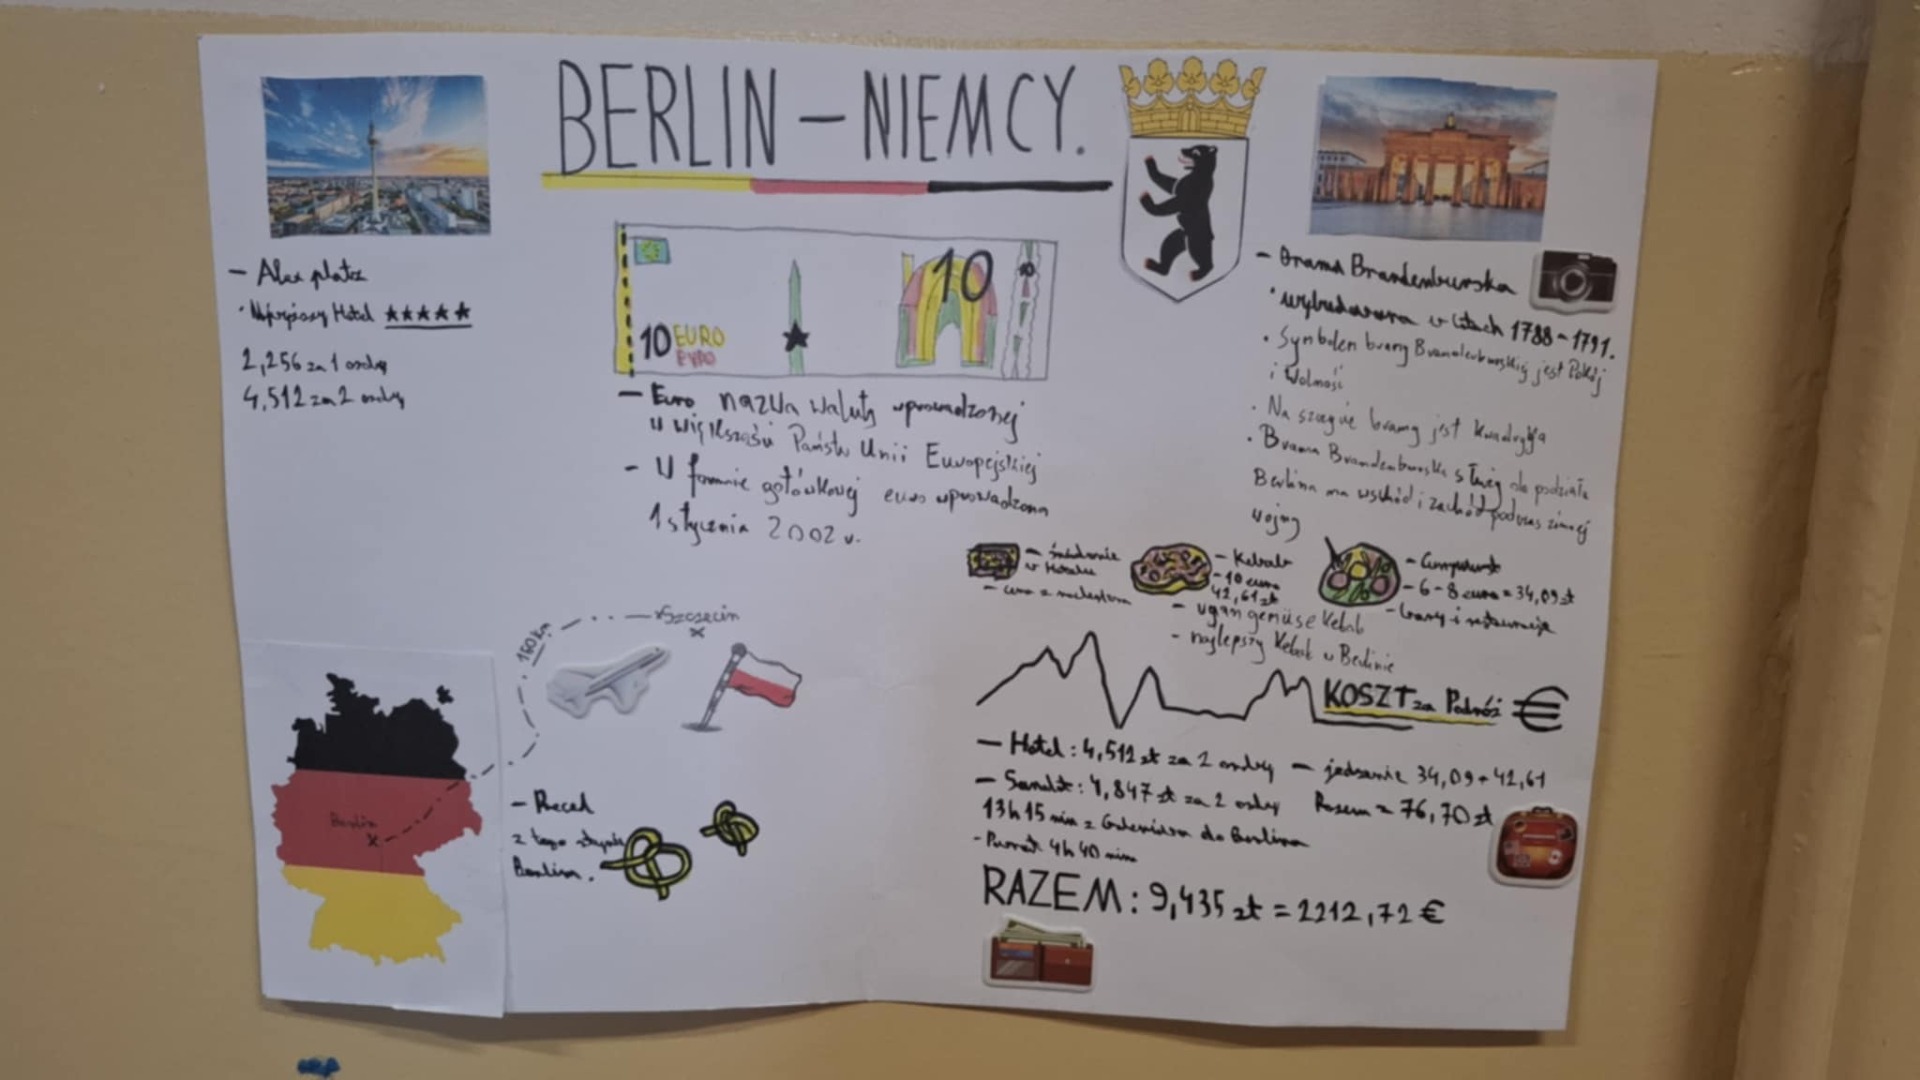 BERLIN – NIEMCY.
– Alex platz
· Najwyższy Hotel ★★★★★
2,256 za 1 osobę
4,512 za 2 osoby
10 EURO
10
10
– Euro nazwa waluty wprowadzonej
w większości Państw Unii Europejskiej
– W formie gotówkowej euro wprowadzona
1 stycznia 2002 r.
– Brama Brandenburska
· wybudowana w latach 1788–1791.
· Symbolem bramy Brandenburskiej jest Pokój
i Wolność
· Na szczycie bramy jest kwadryga
· Brama Brandenburska służy do podziału
Berlina na wschód i zachód podczas zimnej
wojny
– śniadanie
w Hotelu
– cena z noclegiem
– Kebab
– 10 euro
42,61 zł
– ugan gemüse Kebab
– najlepszy Kebab w Berlinie
– Currywurst
– 6 – 8 euro = 34,09 zł
– bary i restauracje
Szczecin
150 km
Berlin
– Precel
z tego słynie
Berlin.
KOSZT za Podróż €
– Hotel : 4,512 zł za 2 osoby
– Samolot : 4,847 zł za 2 osoby
13h 15 min z Goleniowa do Berlina
– Powrót 4h 40 min
– jedzenie 34,09 + 42,61
Razem = 76,70 zł
RAZEM : 9,435 zł = 2212,72 €